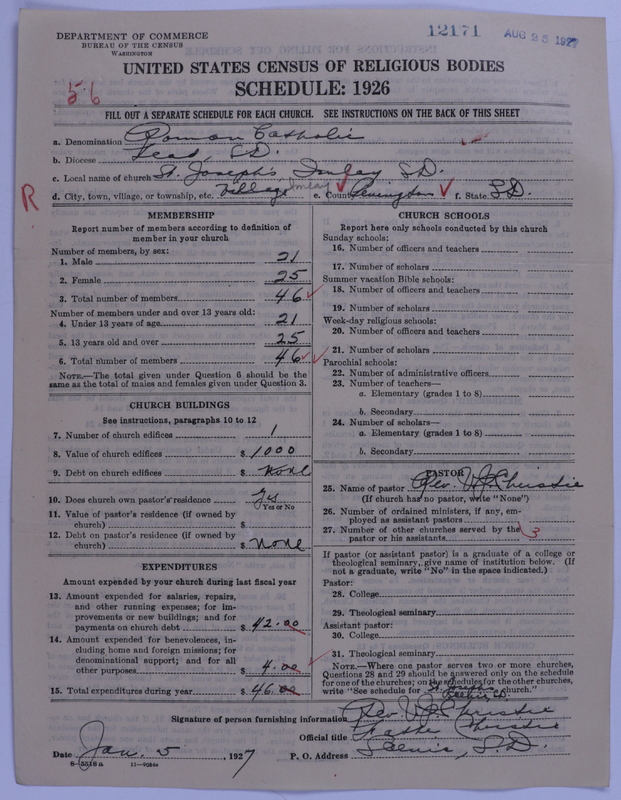 DEPARTMENT OF COMMERCE
BUREAU OF THE CENSUS
WASHINGTON
12171 AUG 25 1927
UNITED STATES CENSUS OF RELIGIOUS BODIES
SCHEDULE: 1926
56
FILL OUT A SEPARATE SCHEDULE FOR EACH CHURCH. SEE INSTRUCTIONS ON THE BACK OF THIS SHEET
a. Denomination Roman Catholic
b. Diocese Lead, S.D.
c. Local name of church St. Joseph's Imlay S.D.
R
d. City, town, village, or township, etc. Village Imlay e. County Pennington f. State S.D.
MEMBERSHIP
Report number of members according to definition of
member in your church
Number of members, by sex:
1. Male 21
2. Female 25
3. Total number of members 46
Number of members under and over 13 years old:
4. Under 13 years of age 21
5. 13 years old and over 25
6. Total number of members 46
NOTE.—The total given under Question 6 should be the
same as the total of males and females given under Question 3.
CHURCH BUILDINGS
See instructions, paragraphs 10 to 12
7. Number of church edifices 1
8. Value of church edifices $ 1000
9. Debt on church edifices $ None
10. Does church own pastor's residence Yes
Yes or No
11. Value of pastor's residence (if owned by
church) $
12. Debt on pastor's residence (if owned by
church) $ None
EXPENDITURES
Amount expended by your church during last fiscal year
13. Amount expended for salaries, repairs,
and other running expenses; for im-
provements or new buildings; and for
payments on church debt $ 42.00
14. Amount expended for benevolences, in-
cluding home and foreign missions; for
denominational support; and for all
other purposes $ 4.00
15. Total expenditures during year $ 46.00
CHURCH SCHOOLS
Report here only schools conducted by this church
Sunday schools:
16. Number of officers and teachers
17. Number of scholars
Summer vacation Bible schools:
18. Number of officers and teachers
19. Number of scholars
Week-day religious schools:
20. Number of officers and teachers
21. Number of scholars
Parochial schools:
22. Number of administrative officers
23. Number of teachers—
a. Elementary (grades 1 to 8)
b. Secondary
24. Number of scholars—
a. Elementary (grades 1 to 8)
b. Secondary
PASTOR
25. Name of pastor Rev. W. J. Christie
(If church has no pastor, write "None")
26. Number of ordained ministers, if any, em-
ployed as assistant pastors
27. Number of other churches served by the
pastor or his assistants 3
If pastor (or assistant pastor) is a graduate of a college or
theological seminary, give name of institution below. (If
not a graduate, write "No" in the space indicated.)
Pastor:
28. College
29. Theological seminary
Assistant pastor:
30. College
31. Theological seminary
NOTE.—Where one pastor serves two or more churches,
Questions 28 and 29 should be answered only on the schedule
for one of the churches; on the schedules for the other churches,
write "See schedule for church."
Signature of person furnishing information Rev. W. J. Christie
Official title Christie
Date Jan. 5, 1927 P. O. Address Scenic, S.D.
8—5518a 11—9084